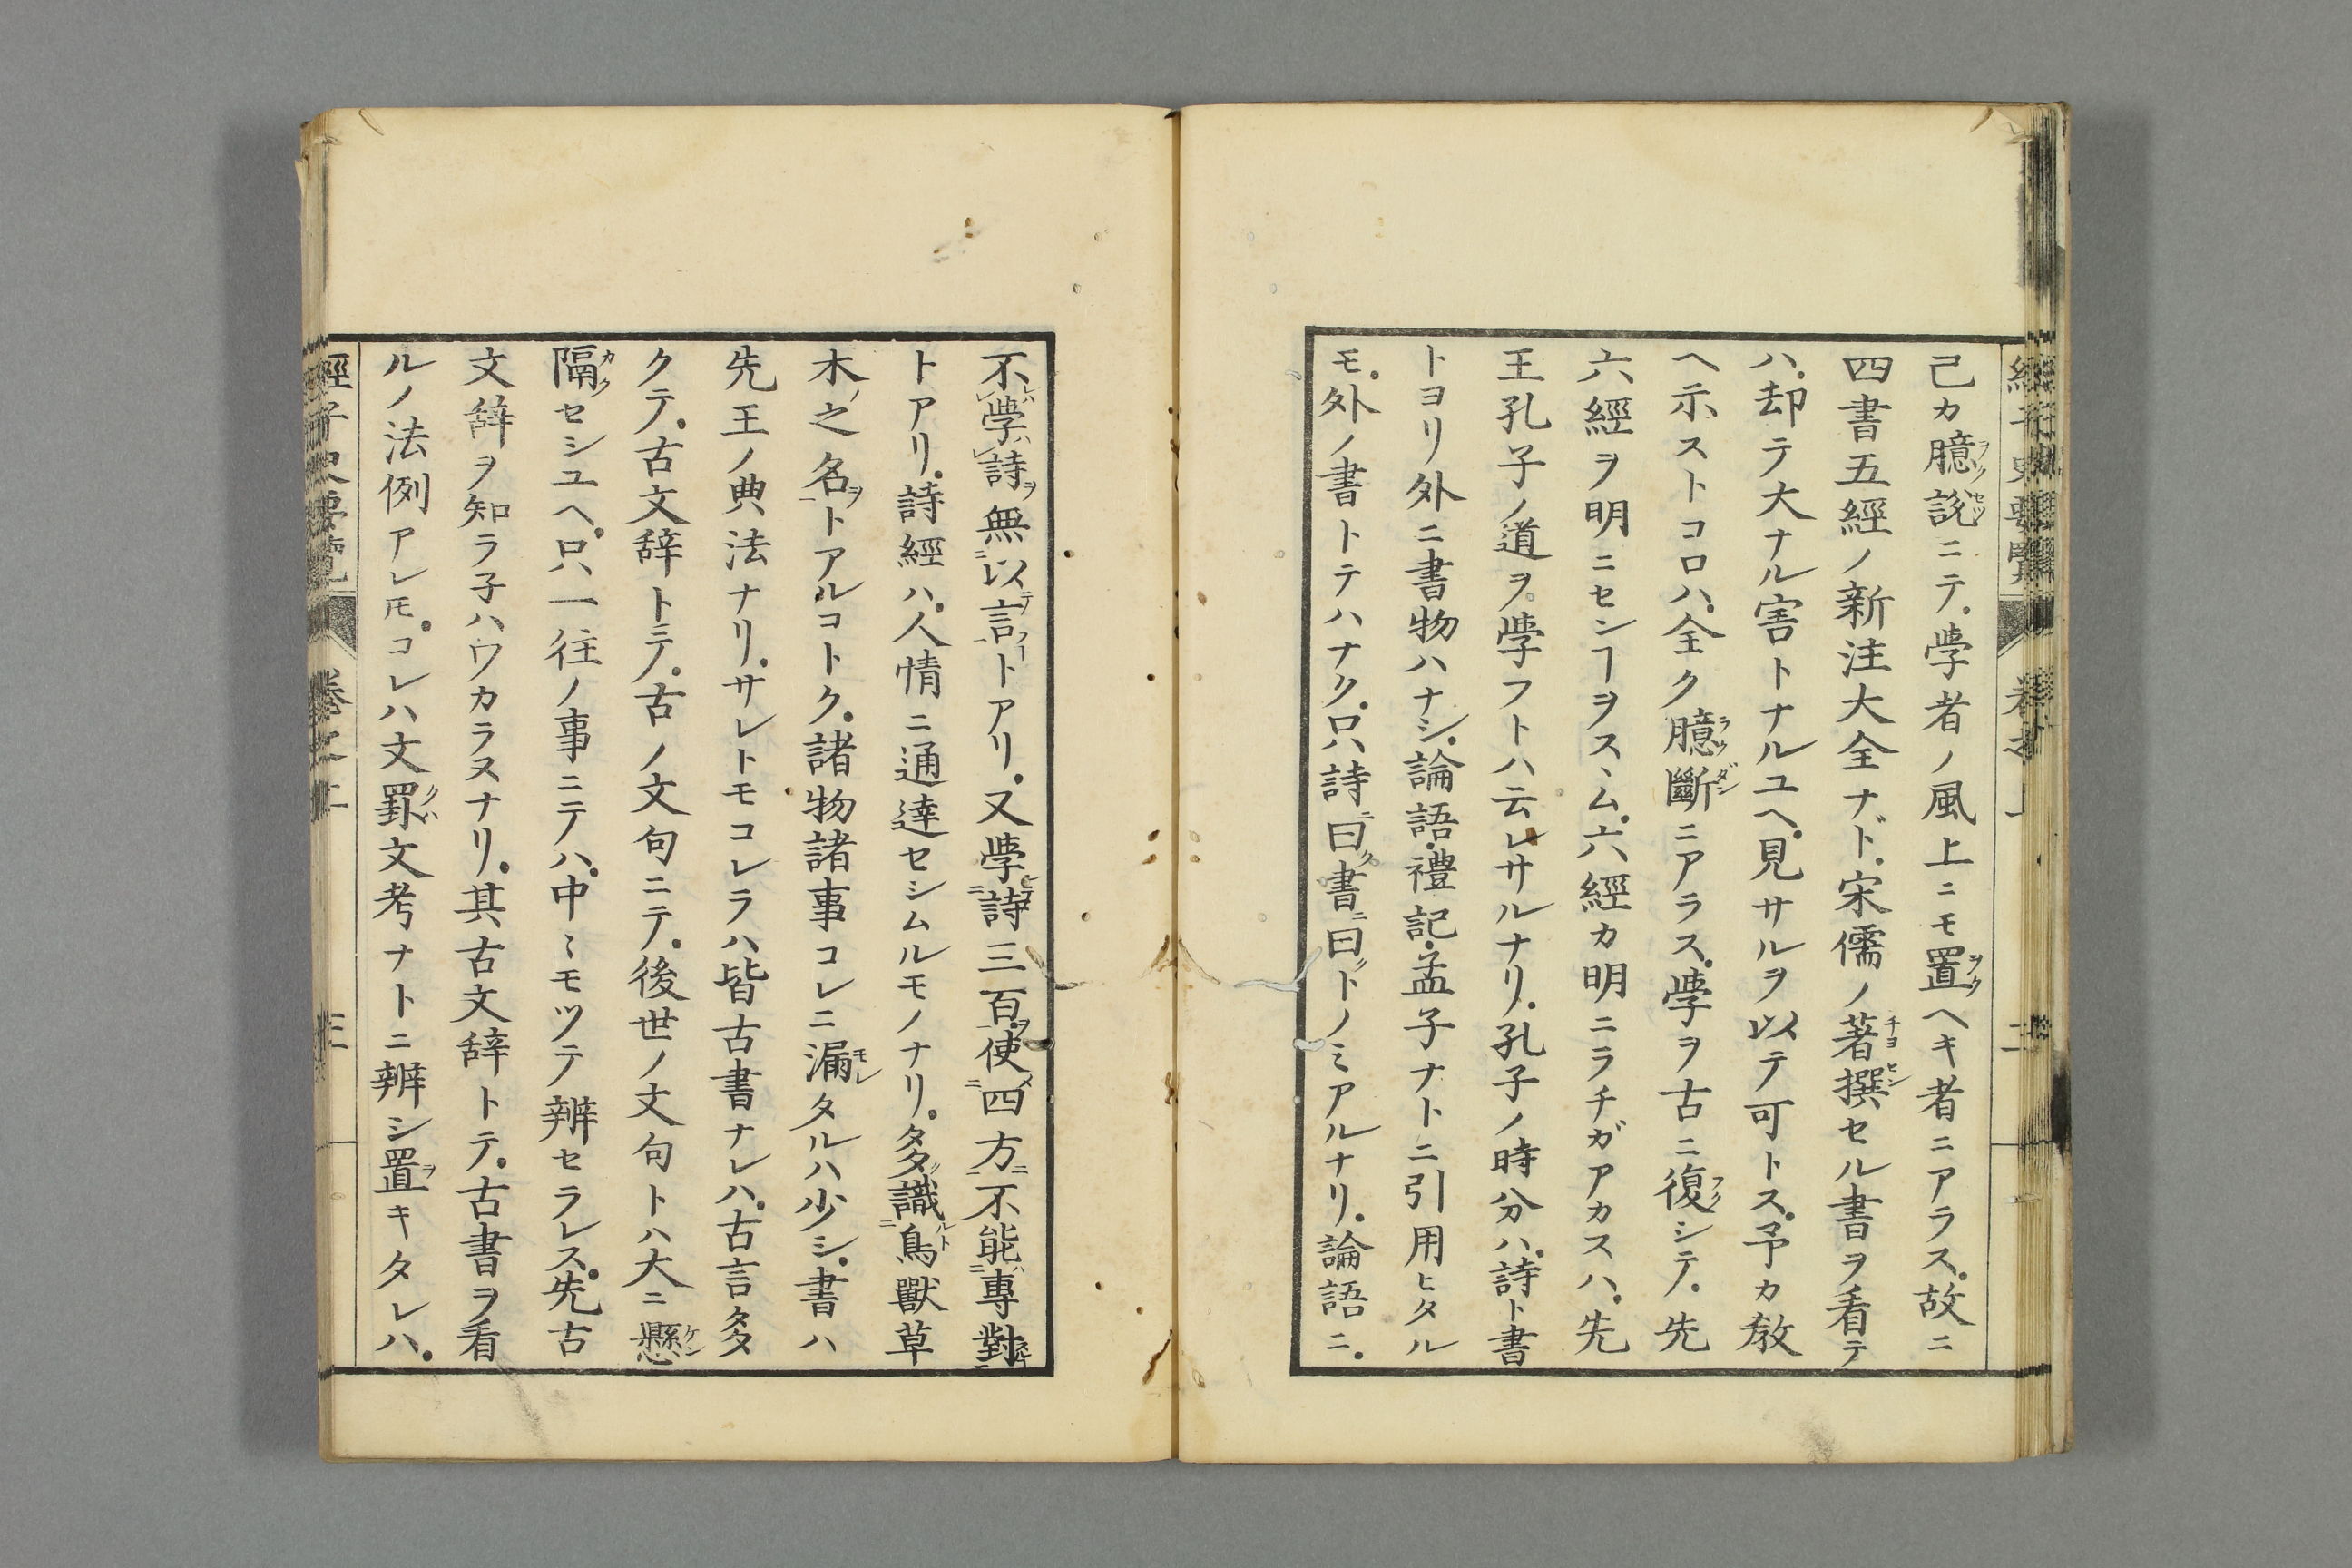 己カ臆說ニテ。學者ノ風上ニモ置ヘキ者ニアラス。故ニ
四書五經ノ新注大全ナド。宋儒ノ著撰セル書ヲ看テ
ハ。却テ大ナル害トナルユヘ。見サルヲ以テ可トス。予カ教
ヘ示ストコロハ。全ク臆斷ニアラス。學ヲ古ニ復シテ。先
六經ヲ明ニセンヿヲスヽム。六經カ明ニラチガアカスハ。先
王孔子ノ道ヲ學フトハ云レサルナリ。孔子ノ時分ハ。詩ト書
トヨリ外ニ書物ハナシ。論語。禮記。孟子ナトニ引用ヒタル
モ。外ノ書トテハナク。只詩曰書曰トノミアルナリ。論語ニ。
不學詩無以言トアリ。又學詩三百使四方不能專對
トアリ。詩經ハ。人情ニ通達セシムルモノナリ。多識鳥獸草
木之名トアルコトク。諸物諸事コレニ漏タルハ少シ。書ハ
先王ノ典法ナリ。サレトモコレラハ皆古書ナレハ。古言多
クテ。古文辞トテ。古ノ文句ニテ。後世ノ文句トハ大ニ懸
隔セシユヘ。只一往ノ事ニテハ。中〻モツテ辨セラレス。先古
文辞ヲ知ラ子ハワカラヌナリ。其古文辞トテ。古書ヲ看
ルノ法例アレ𪜈。コレハ文罫文考ナトニ辨シ置キタレハ。
經子史要覽 卷之上 三